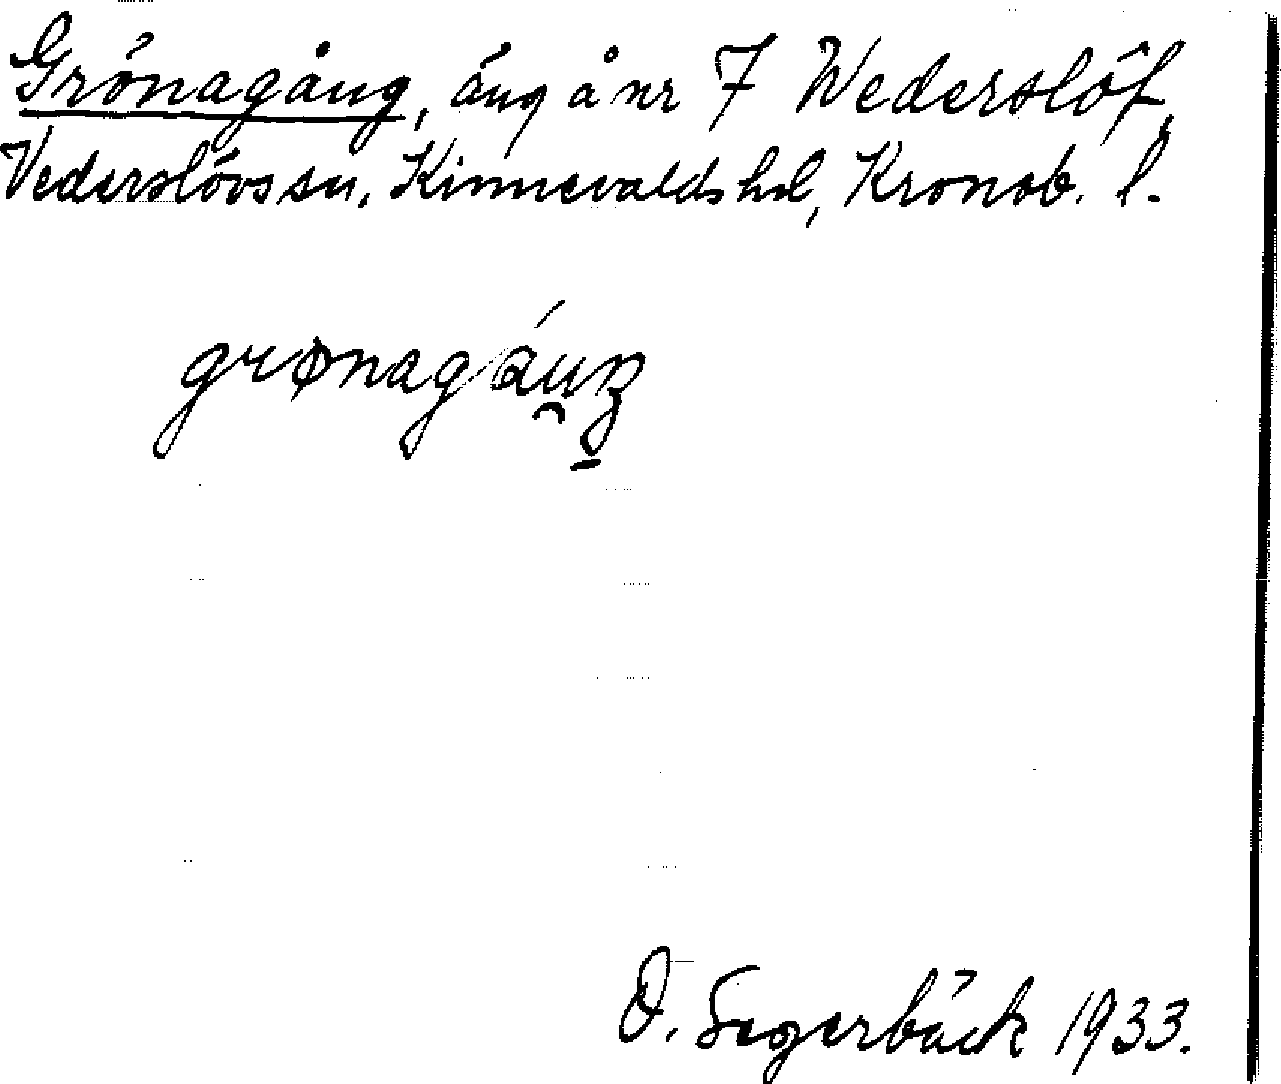 Grönagång, äng å nr 7 Wederslöf,
Vederslövs sn, Kinnevalds hd, Kronob. l.
O. Segerbäck 1933.